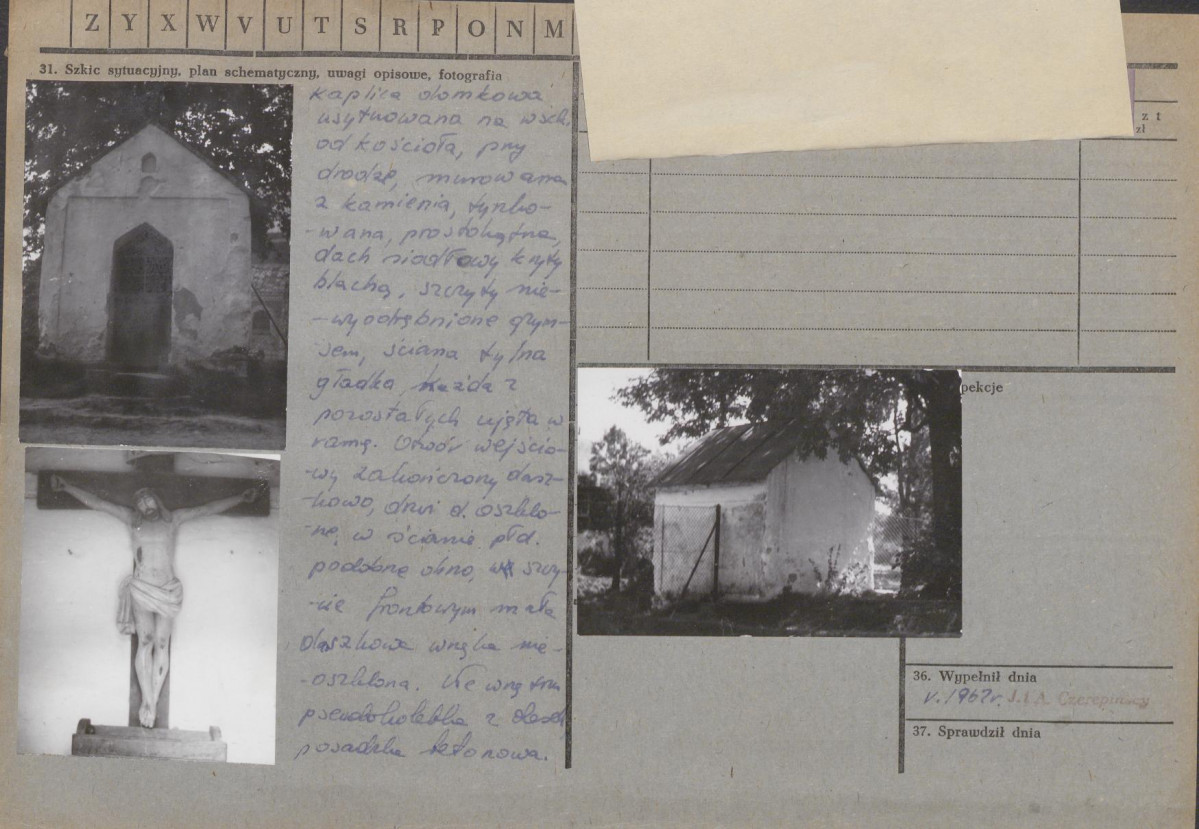 Z Y X W V U T S R P O N M
31. Szkic sytuacyjny, plan schematyczny, uwagi opisowe, fotografia
Kaplica domkowa
usytuowana na wsch.
od kościoła, przy
drodze, murowana
z kamienia, tynko-
-wana, prostokątna,
dach siodłowy kryty
blachą, szczyty nie-
-wyodrębnione gzym-
sem, ściana tylna
gładka każda z
pozostałych ujęta w
ramę. Otwór wejścio-
-wy zakończony dasz-
-kowo, drzwi d. oszklo-
-ne, w ścianie płd.
podobne okno, w szczy-
-cie frontowym mała
daszkowa wnęka nie-
-oszklona. We wnętrzu
pseudokolebka z desek
posadzka betonowa.
z t
zł
pekcje
36. Wypełnił dnia
V. 1967r. J. i A. Czerepińscy
37. Sprawdził dnia